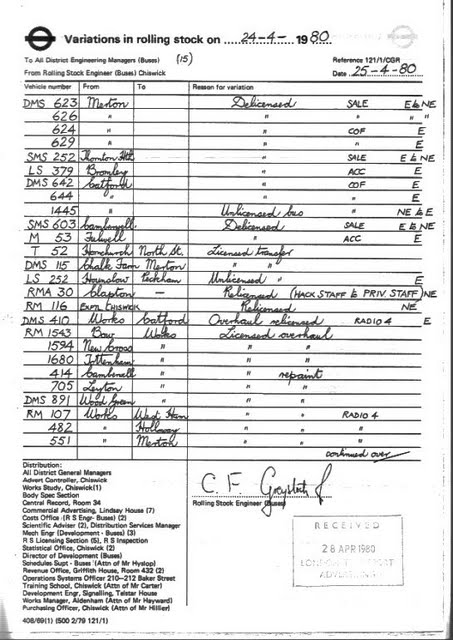 Variations in rolling stock on 24-4- 1980
To All District Engineering Managers (Buses) (15) Reference 121/1/CGR
From Rolling Stock Engineer (Buses) Chiswick Date 25-4-80
Vehicle number From To Reason for variation
DMS 623 Merton Delicensed SALE E & NE
626 " " " " "
624 " " COF E
629 " " " E
SMS 252 Thornton Hth " SALE E & NE
LS 379 Bromley " ACC E
DMS 642 Catford " COF E
644 " " E
1445 " Unlicensed bus " NE & E
SMS 603 Camberwell Delicensed SALE E & NE
M 53 Fulwell " ACC E
T 52 Hornchurch North St. Licensed transfer
DMS 115 Chalk Farm Merton " "
LS 252 Hounslow Peckham Unlicensed " E
RMA 30 Clapton — Relicensed (HACK STAFF & PRIV. STAFF) NE
RM 116 Exptl Chiswick Relicensed NE
DMS 410 Works Catford Overhaul relicensed RADIO 4 E
RM 1543 Bow Works Licensed overhaul
1594 New Cross " " "
1680 Tottenham " " "
414 Camberwell " " repaint
705 Leyton " " "
DMS 891 Wood Green " " "
RM 107 Works West Ham " " RADIO 4
482 " Holloway " "
551 " Merton " "
continued over
Distribution:
All District General Managers
Advert Controller, Chiswick
Works Study, Chiswick(1)
Body Spec Section
Central Record, Room 34
Commercial Advertising, Lindsay House (7)
Costs Office (R S Engr- Buses) (2)
Scientific Adviser (2), Distribution Services Manager
Mech Engr (Development - Buses) (3)
R S Licensing Section (5), R S Inspection
Statistical Office, Chiswick (2)
Director of Development (Buses)
Schedules Supt - Buses (Attn of Mr Hyslop)
Revenue Office, Griffith House, Room 432 (2)
Operations Systems Officer 210-212 Baker Street
Training School, Chiswick (Attn of Mr Carter)
Development Engr, Signalling, Telstar House
Works Manager, Aldenham (Attn of Mr Hayward)
Purchasing Officer, Chiswick (Attn of Mr Hillier)
C. F.
Rolling Stock Engineer (Buses)
RECEIVED
28 APR 1980
LONDON TRANSPORT
ADVERTISING
408/69(1) (500 2/79 121/1)